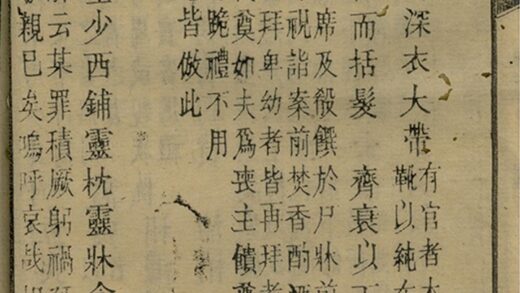 深衣大帶
有官者
靴以純
而括髮　齊衰以
席及殽饌於尸牀前
祝詣案前焚香酌酒
拜卑幼者皆再拜
奠如夫爲喪主饋奠
晚禮不用
皆倣此
少西鋪靈枕靈牀
云某罪積厥躬禍
親已矣嗚呼哀哉